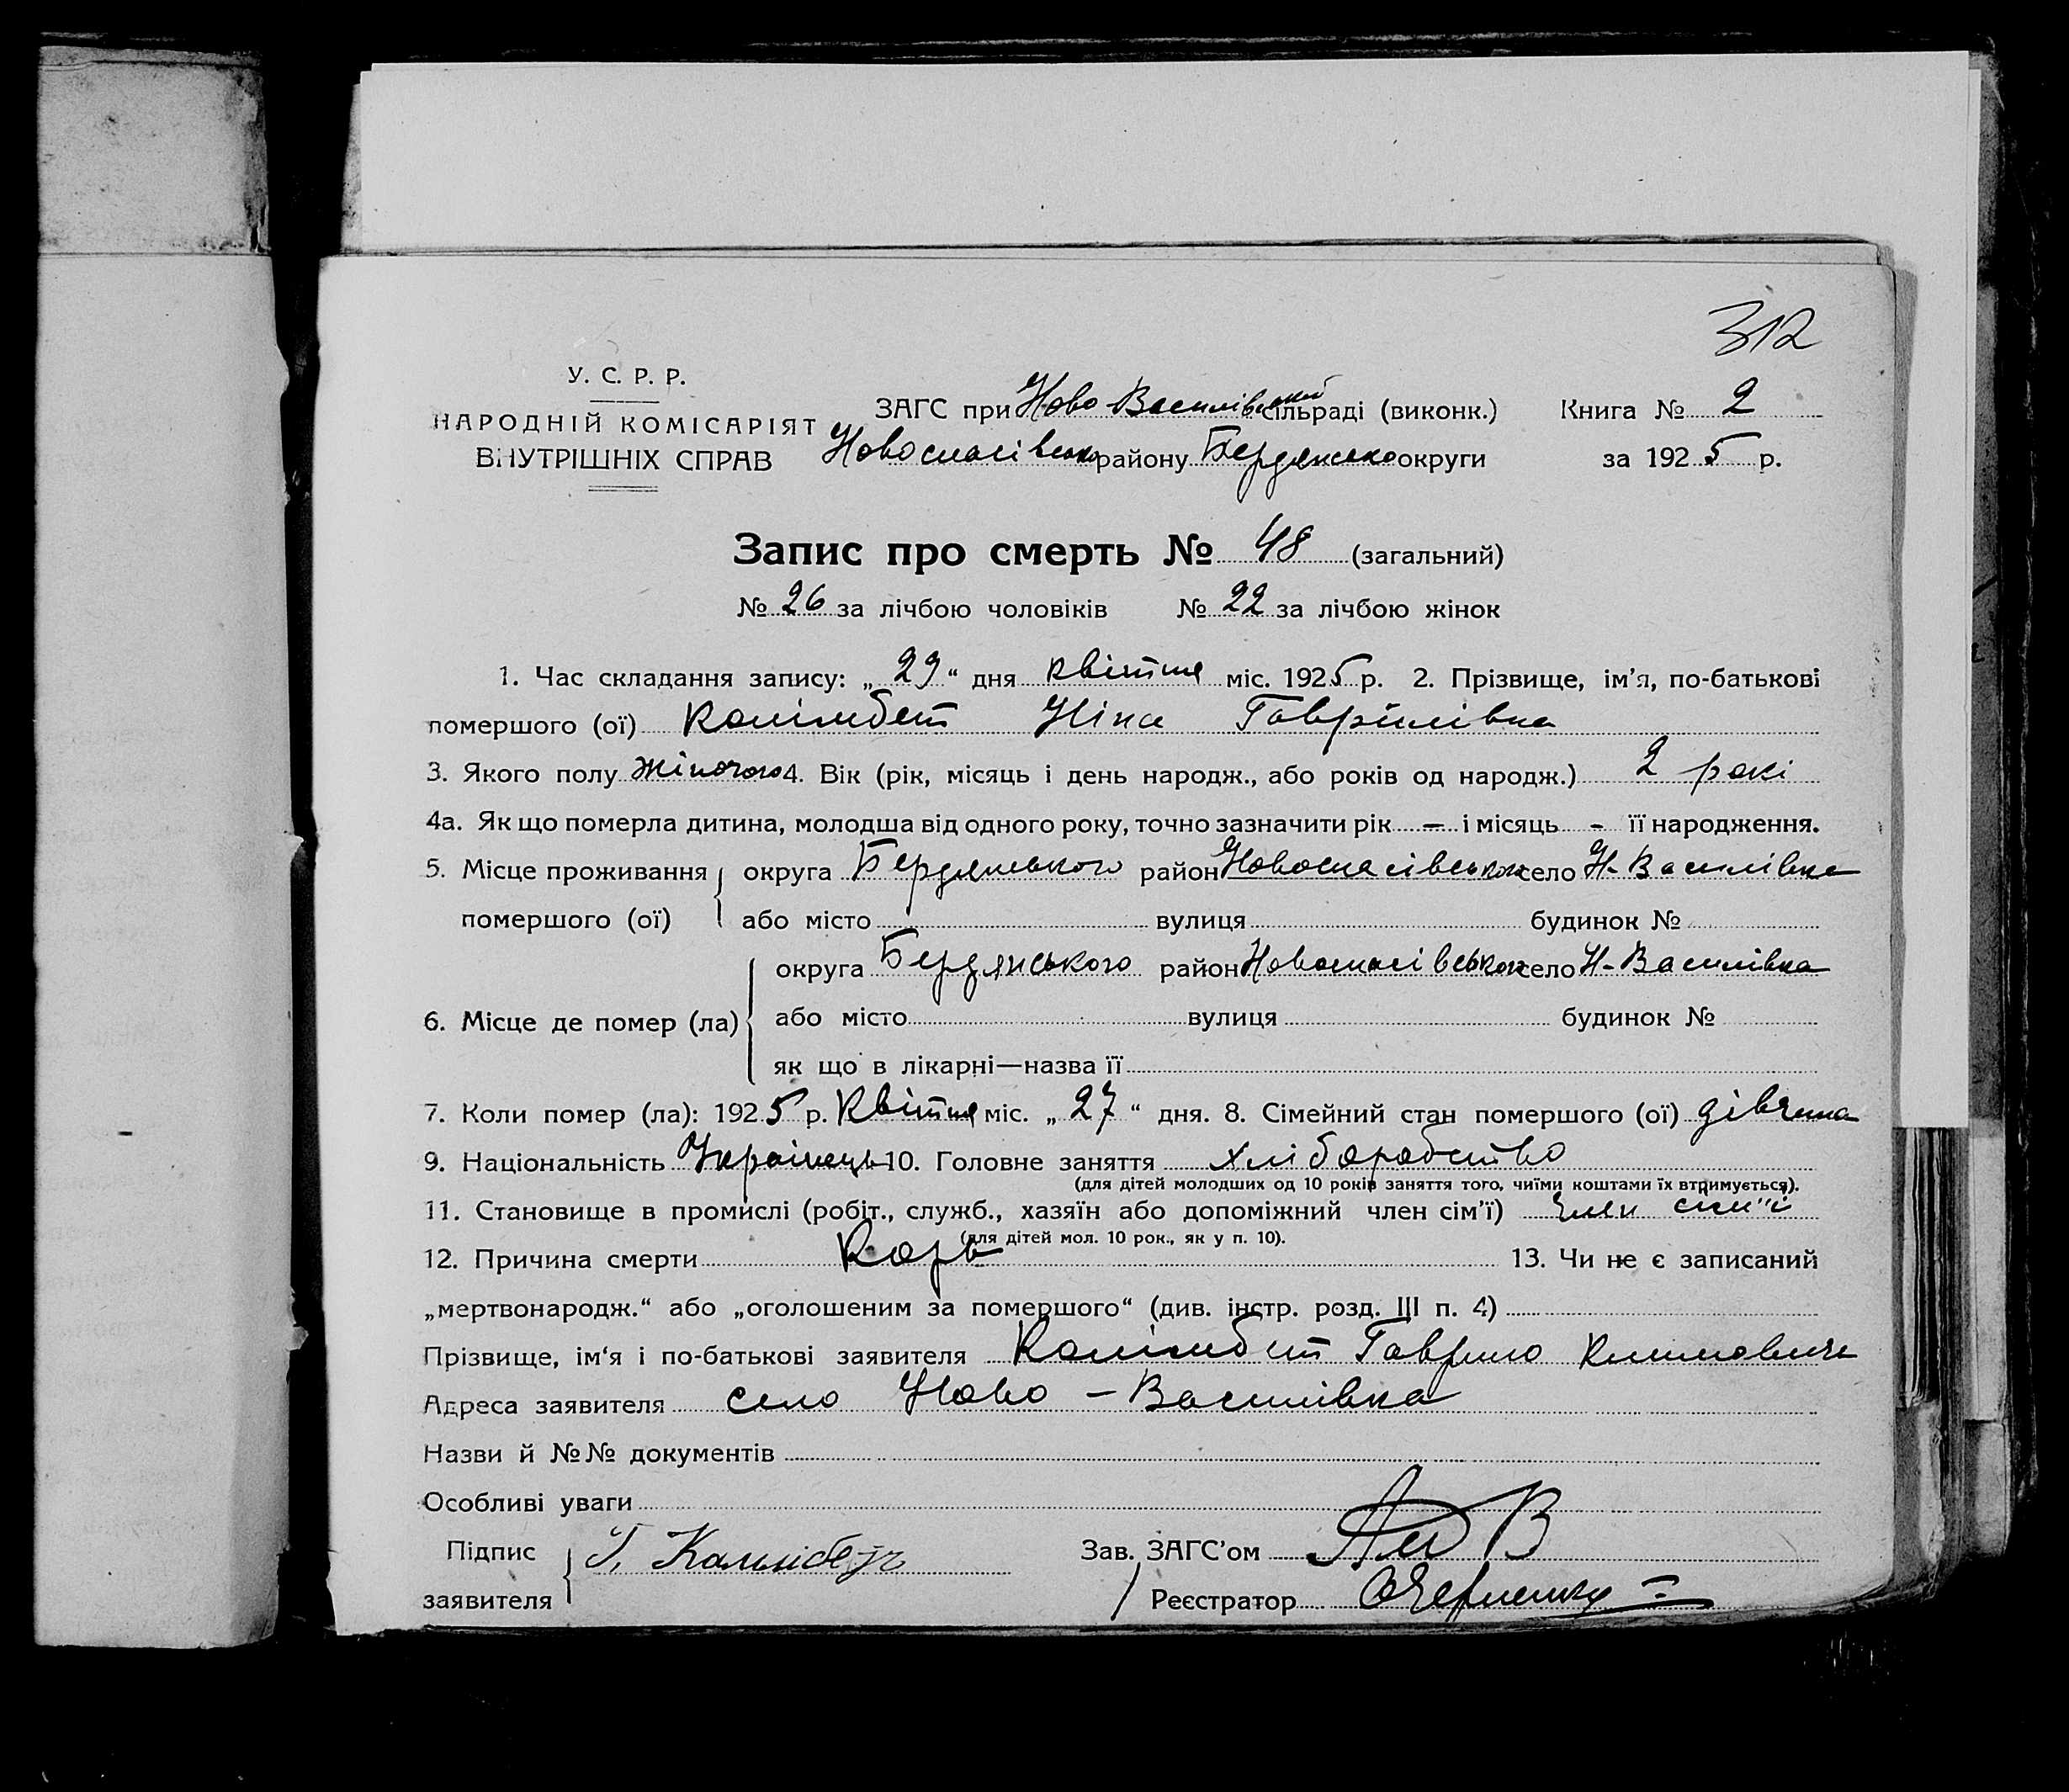 312
У. С. Р. Р.
НАРОДНІЙ КОМІСАРІЯТ
ВНУТРІШНІХ СПРАВ
ЗАГС при Ново Василівській сільраді (виконк.) Книга № 2
Новоспасівсько району Бердянсько округи за 1925 р.
Запис про смерть № 48 (загальний)
№ 26 за лічбою чоловіків № 22 за лічбою жінок
1. Час складання запису: „29“ дня квітня міс. 1925 р. 2. Прізвище, ім'я, по-батькові
помершого (ої) Калімбет Ніна Гаврилівна
3. Якого полу жіночого 4. Вік (рік, місяць і день народж., або років од народж.) 2 рокі
4а. Як що померла дитина, молодша від одного року, точно зазначити рік — і місяць - її народження.
5. Місце проживання округа Бердянського район Новоспасівського село Н-Василівка
помершого (ої) або місто вулиця будинок №
округа Бердянського район Новоспасівського село Н-Василівка
6. Місце де помер (ла) або місто вулиця будинок №
як що в лікарні—назва її
7. Коли помер (ла): 1925 р. Квітня міс. „27“ дня. 8. Сімейний стан помершого (ої) дівчина
9. Національність Українець 10. Головне заняття хліборобство
(для дітей молодших од 10 років заняття того, чиїми коштами їх втримується).
11. Становище в промислі (робіт., служб., хазяїн або допоміжний член сім'ї) член сім'ї
(для дітей мол. 10 рок., як у п. 10).
12. Причина смерти Корь 13. Чи не є записаний
„мертвонародж.“ або „оголошеним за помершого“ (див. інстр. розд. III п. 4)
Прізвище, ім'я і по-батькові заявителя Калімбет Гаврило Климович
Адреса заявителя село Ново - Василівка
Назви й №№ документів
Особливі уваги
Підпис заявителя Г. Калмібетъ
Зав. ЗАГС'ом
Реєстратор